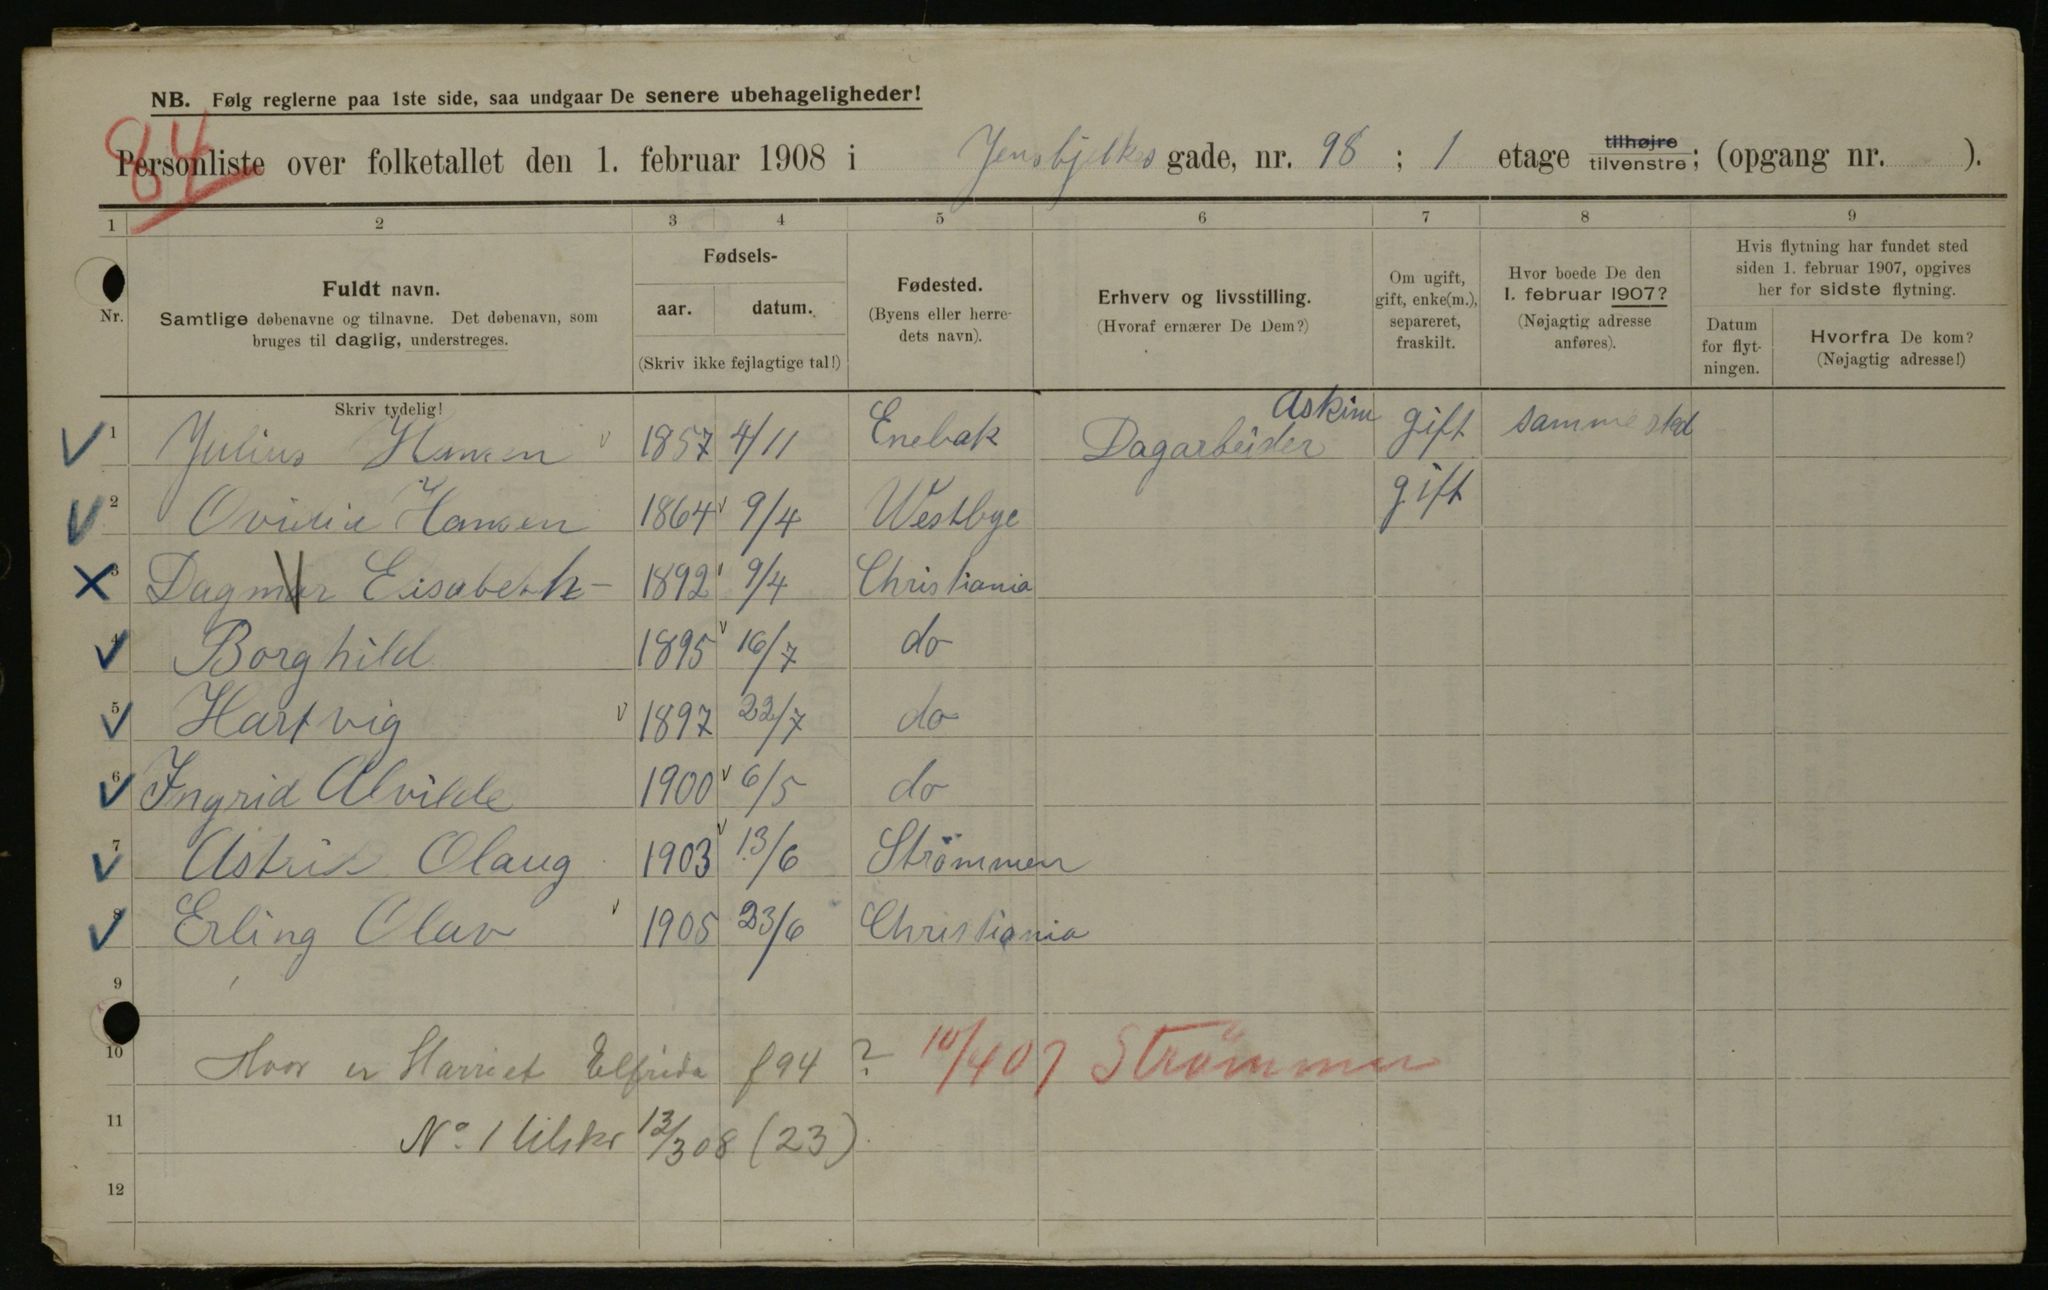 NB. Følg reglerne paa 1ste side, saa undgaar De senere ubehageligheder!
84
Personliste over folketallet den 1. februar 1908 i Jensbjelkes gade, nr. 98 ; 1 etage tilhøjre tilvenstre; (opgang nr. ).
1 2 3 4 5 6 7 8 9
Nr.
Fuldt navn.
Samtlige døbenavne og tilnavne. Det døbenavn, som
bruges til daglig, understreges.
Skriv tydelig!
Fødsels-
aar. datum.
(Skriv ikke fejlagtige tal!)
Fødested.
(Byens eller herre-
dets navn).
Erhverv og livsstilling.
(Hvoraf ernærer De Dem?)
Om ugift,
gift, enke(m.),
separeret,
fraskilt.
Hvor boede De den
1. februar 1907?
(Nøjagtig adresse
anføres).
Hvis flytning har fundet sted
siden 1. februar 1907, opgives
her for sidste flytning.
Datum
for flyt-
ningen.
Hvorfra De kom?
(Nøjagtig adresse!)
Askim
1 Julius Hansen 1857 4/11 Enebak Dagarbeider gift samme sted
2 Ovidia Hansen 1864 9/4 Westbye gift
3 Dagmar Elisabeth - 1892 9/4 Christiania
4 Borghild 1895 16/7 do
5 Hartvig 1897 22/7 do
6 Ingrid Alvilde 1900 6/5 do
7 Astrid Olaug 1903 13/6 Strömmen
8 Erling Olav 1905 23/6 Christiania
9
10 Hvor er Harriet Elfrida f 94 ? 10/4 07 Strömmen
11 No. 1 tilskr 12/3 08 (23)
12